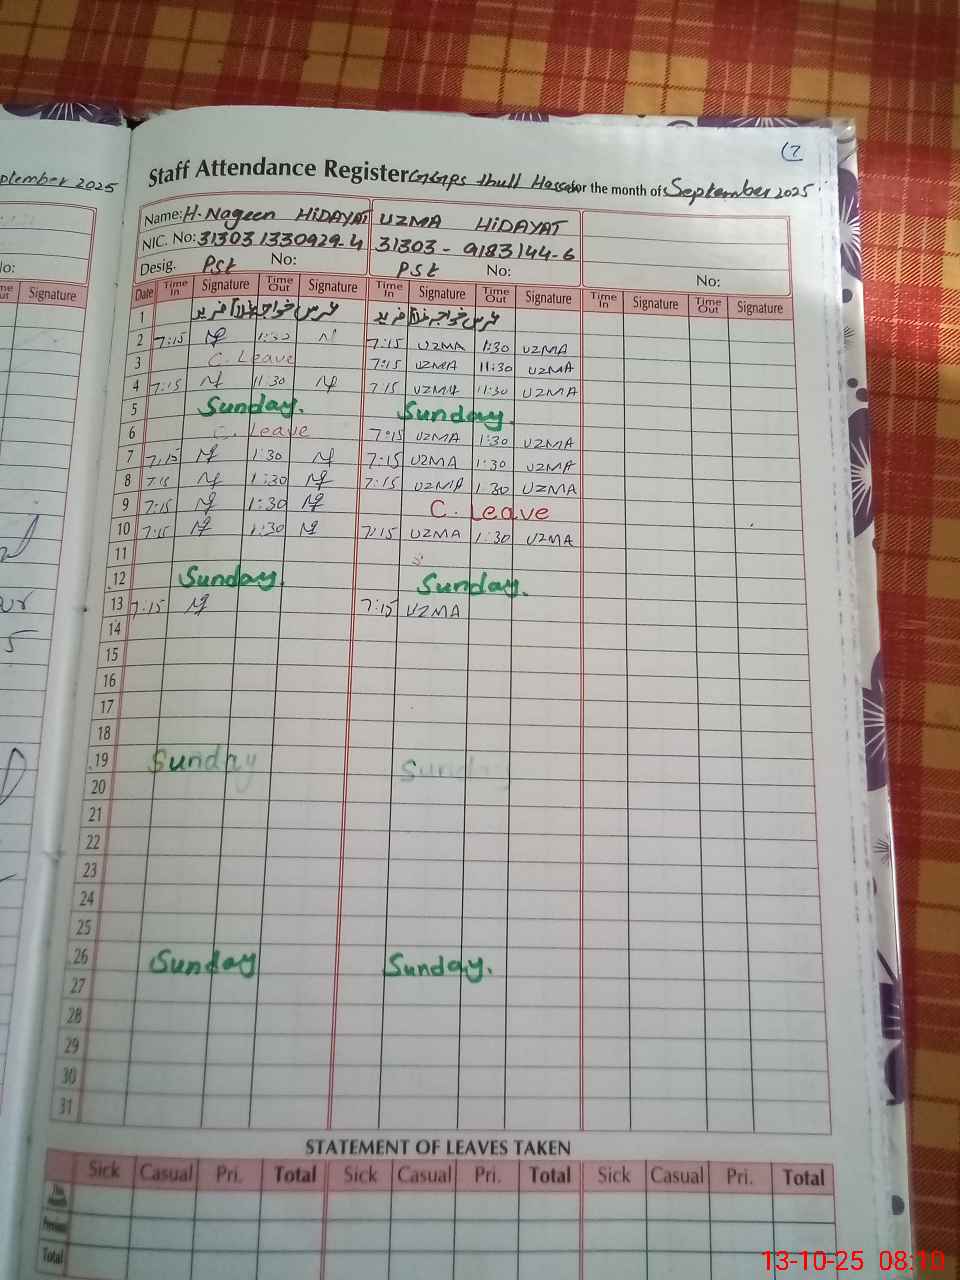 (7
Staff Attendance Register GGPS thull Hassan for the month of September 2025
ptember 2025
Name: H. Nageen HiDAYAT UZMA HiDAYAT
NIC. No: 31303 1330929-4 31303 - 9183144-6
Desig. Pst No: PSt No: No:
Signature
Date Time In Signature Time Out Signature Time In Signature Time Out Signature Time In Signature Time Out Signature
1 عرس خواجہ غلام فرید عرس خواجہ غلام فرید
2 7:15 1:30 7:15 UZMA 1:30 UZMA
3 C. Leave 7:15 UZMA 11:30 UZMA
4 7:15 11:30 7:15 UZMA 11:30 UZMA
5 Sunday. Sunday.
6 C. Leave 7:15 UZMA 1:30 UZMA
7 7:15 1:30 7:15 UZMA 1:30 UZMA
8 7:15 1:30 7:15 UZMA 1:30 UZMA
9 7:15 1:30 C. Leave
10 7:15 1:30 7:15 UZMA 1:30 UZMA
11
12 Sunday. Sunday.
13 7:15 7:15 UZMA
14
15
16
17
18
19 Sunday Sunday
20
21
22
23
24
25
26 Sunday Sunday.
27
28
29
30
31
STATEMENT OF LEAVES TAKEN
Sick Casual Pri. Total Sick Casual Pri. Total Sick Casual Pri. Total
This Month
Previous
Total
13-10-25 08:10